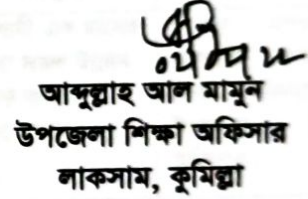 আব্দুল্লাহ আল মামুন
উপজেলা শিক্ষা অফিসার
লাকসাম, কুমিল্লা